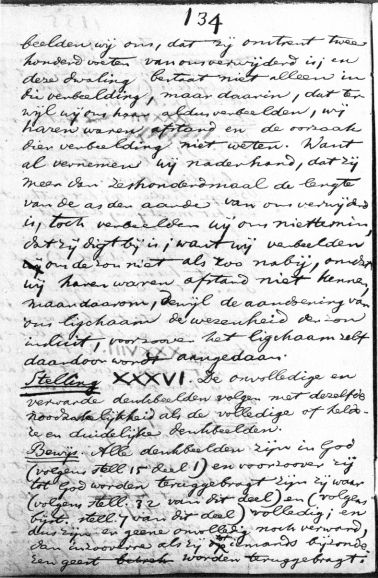 134
beelden wij ons, dat zij omtrent twee
honderd voeten van ons verwijderd is; en
deze dwaling bestaat niet alleen in
die verbeelding, maar daarin, dat ter
wijl wij ons haar aldus verbeelden, wij
haren waren afstand en de oorzaak
dier verbeelding niet weten. Want
al vernemen wij naderhand, dat zij
meer dan zeshonderdmaal de lengte
van de as der aarde van ons verwijderd
is, toch verbeelden wij ons niettemin,
dat zij digt bij is; want wij verbeelden
ons de zon niet als zoo nabij, omdat
wij haren waren afstand niet kennen,
maar daarom, dewijl de aandoening van
ons ligchaam de wezenheid der zon
insluit, voorzoover het ligchaam zelf
daardoor wordt aangedaan.
Stelling XXXVI. De onvolledige en
verwarde denkbeelden volgen met dezelfde
noodzakelijkheid als de volledige of helde-
re en duidelijke denkbeelden.
Bewijs. Alle denkbeelden zijn in God
(volgens stell. 15 deel 1) en voorzoover zij
tot God worden teruggebragt zijn zij waar
(volgens stell. 32 van dit deel) en (volgens
bijv. stell. 7 van dit deel) volledig; en
dus zijn er geene onvolledig noch verward,
dan inzooverre als zij tot iemands bijzonde-
ren geest worden teruggebragt: